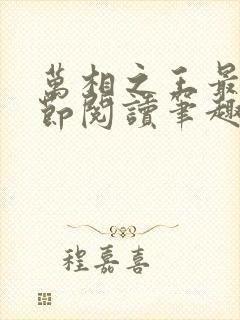 萬相之王最
節閱讀筆趣
程嘉喜